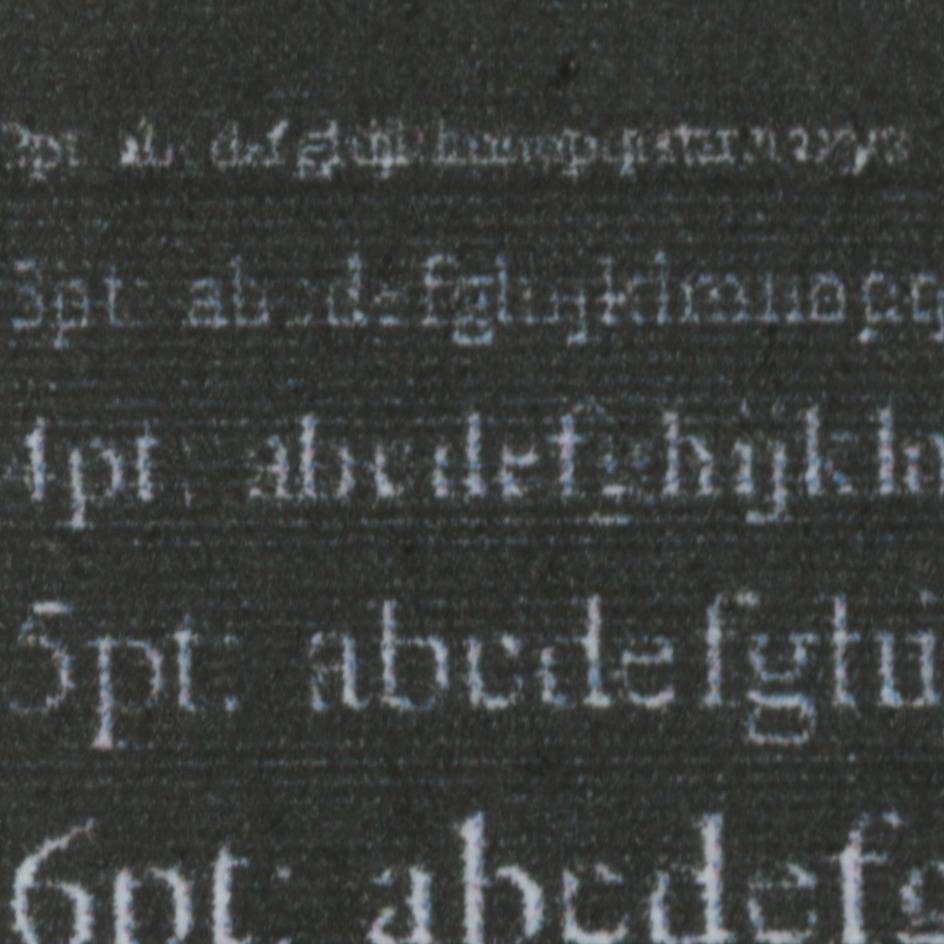 2pt: abcdefghijklmnopqrstuvwxyz
3pt: abcdefghijklmnopq
4pt: abcdefghijklm
5pt: abcdefghi
6pt: abcdefg